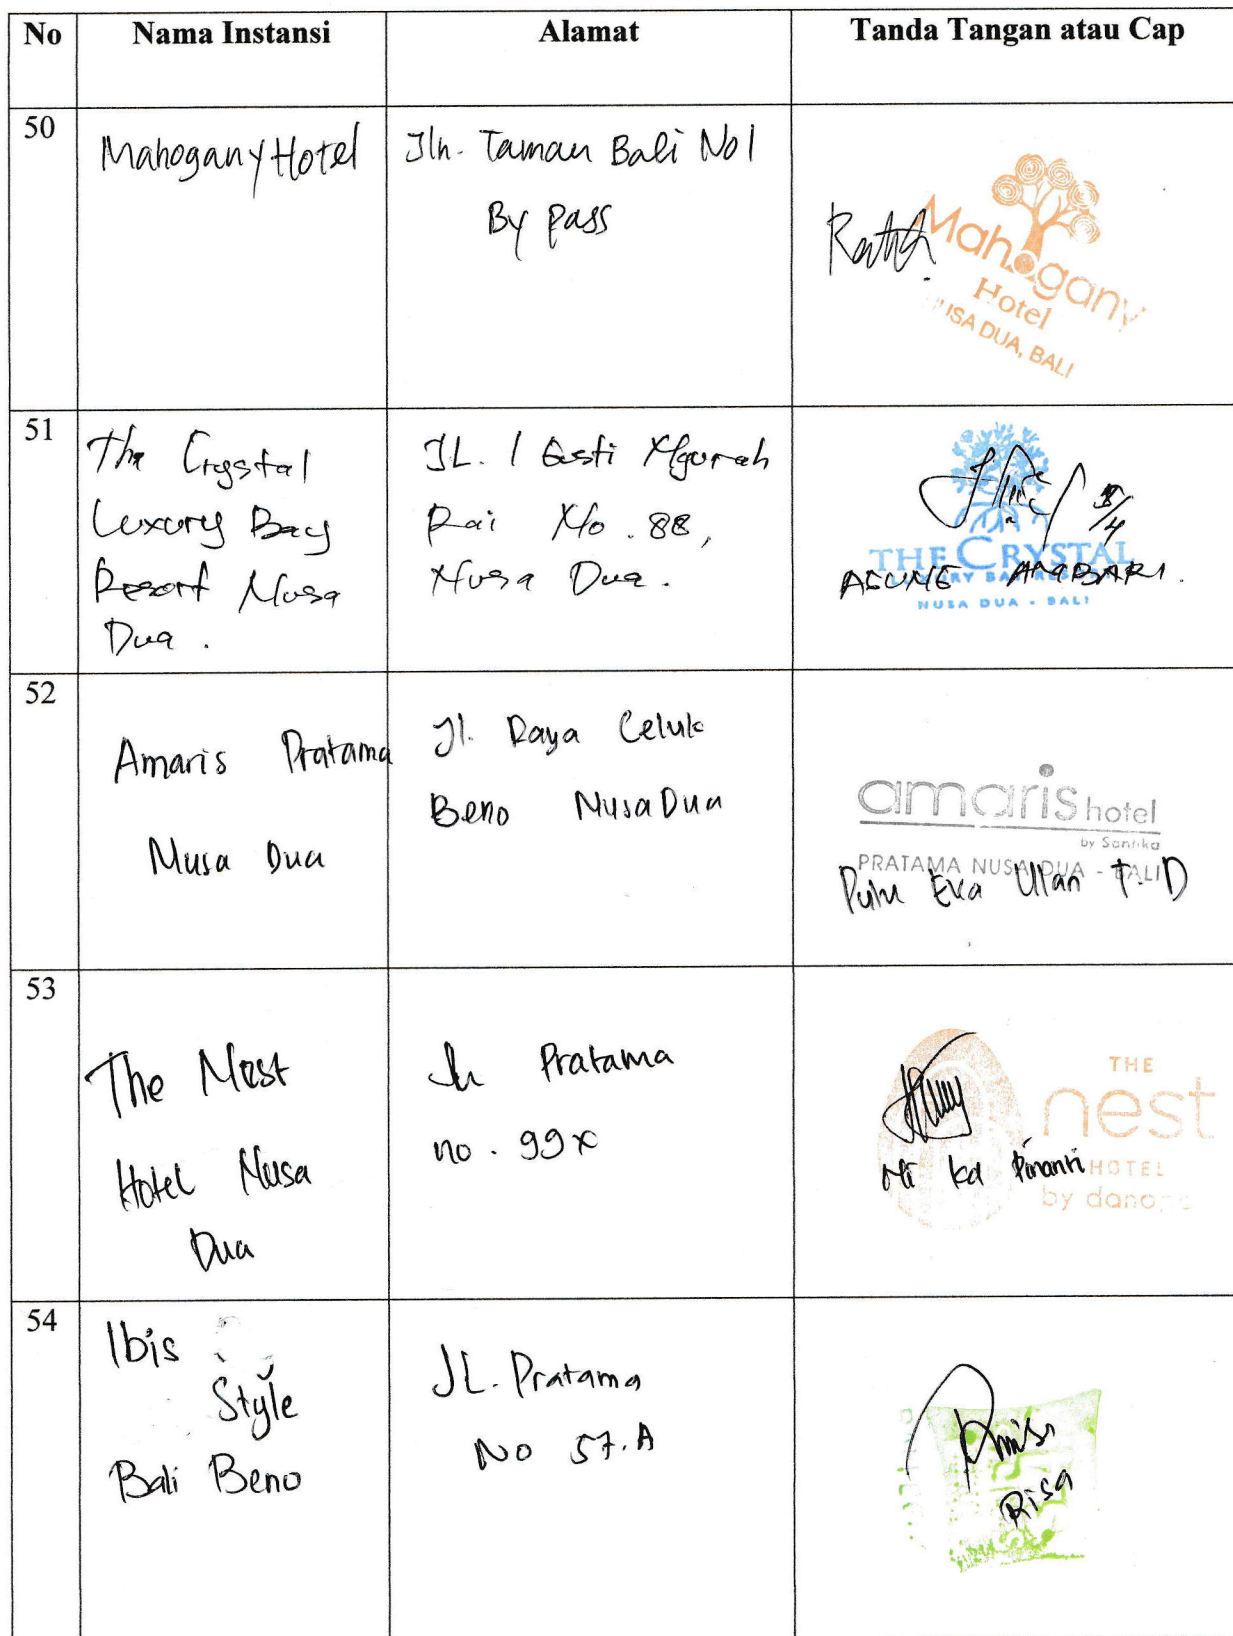 No Nama Instansi Alamat Tanda Tangan atau Cap
50
Mahogany Hotel
Jln. Taman Bali No 1
By pass
Mahogany
Hotel
USA DUA, BALI
51
The Crystal
Luxury Bay
Resort Nusa
Dua.
JL. I Gusti Ngurah
Rai No. 88,
Nusa Dua.
THE CRYSTAL
NUSA DUA - BALI
52
Amaris Pratama
Nusa Dua
Jl. Raya Celuk
Beno Nusa Dua
amaris hotel
by Santika
PRATAMA NUSA DUA - BALI
Putu Eka Ulan T.D
53
The Nest
Hotel Nusa
Dua
Jln Pratama
no. 99x
THE
nest
HOTEL
by
Ni Kd
54
Ibis
Style
Bali Beno
JL. Pratama
No 57.A
Risa